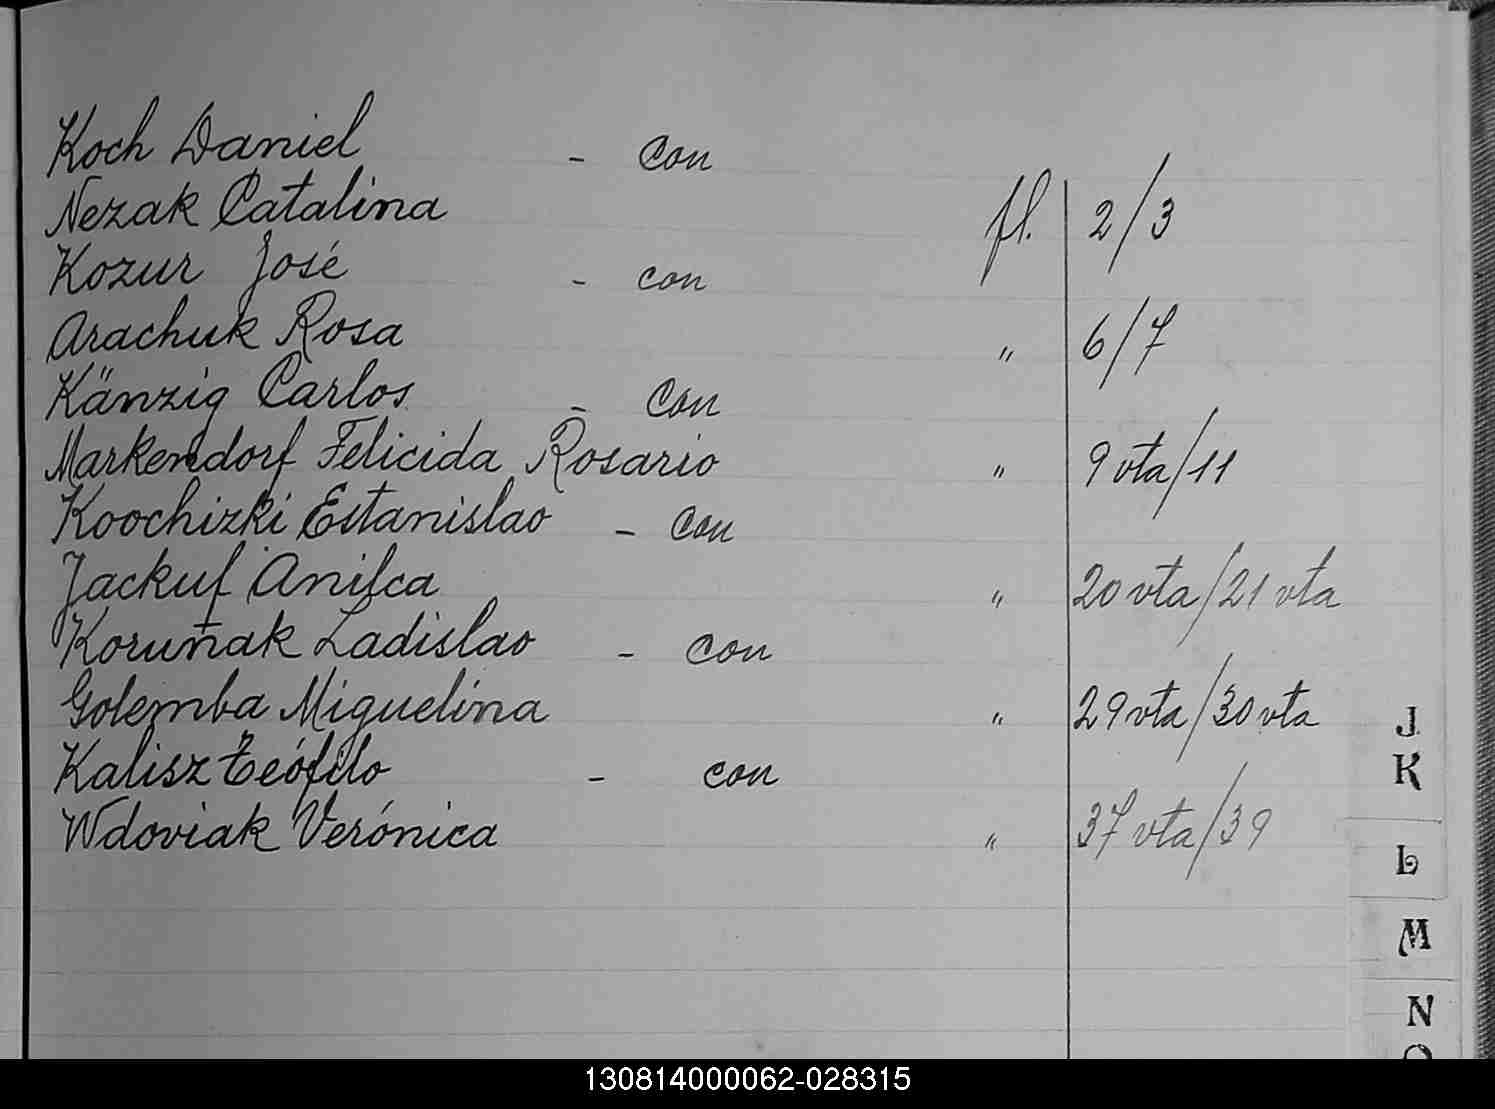 Koch Daniel - con
Nezak Catalina fl. 2/3
Kozur José - con
Arachuk Rosa " 6/7
Känzig Carlos - con
Markendorf Felicida Rosario " 9 vta/11
Koochizki Estanislao - con
Jackuf Anilca " 20 vta/21 vta
Koruñak Ladislao - con
Golemba Miguelina " 29 vta/30 vta
Kalisz Teófilo - con
Wdoviak Verónica " 37 vta/39
J
K
L
M
N
O
130814000062-028315